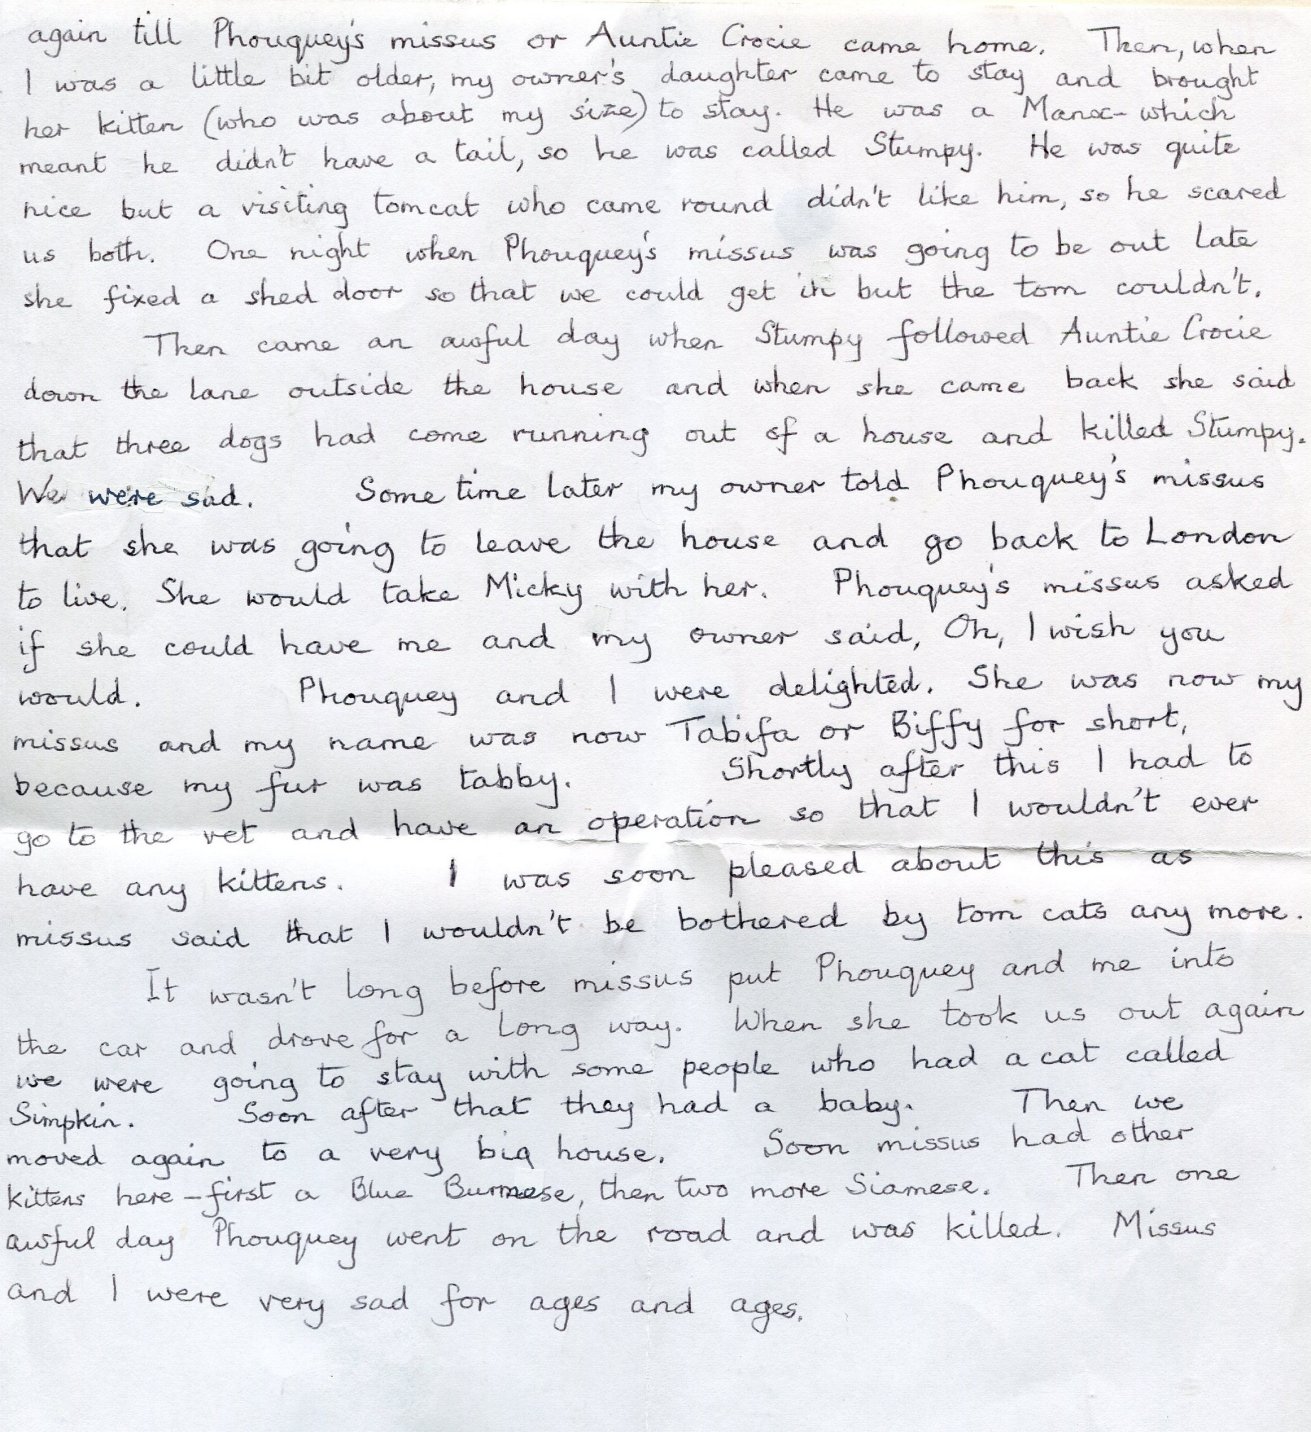 again till Phouquey's missus or Auntie Crocie came home. Then, when
I was a little bit older, my owner's daughter came to stay and brought
her kitten (who was about my size) to stay. He was a Manx - which
meant he didn't have a tail, so he was called Stumpy. He was quite
nice but a visiting tomcat who came round didn't like him, so he scared
us both. One night when Phouquey's missus was going to be out late
she fixed a shed door so that we could get in but the tom couldn't.
Then came an awful day when Stumpy followed Auntie Crocie
down the lane outside the house and when she came back she said
that three dogs had come running out of a house and killed Stumpy.
We were sad. Some time later my owner told Phouquey's missus
that she was going to leave the house and go back to London
to live. She would take Micky with her. Phouquey's missus asked
if she could have me and my owner said, Oh, I wish you
would. Phouquey and I were delighted. She was now my
missus and my name was now Tabifa or Biffy for short,
because my fur was tabby. Shortly after this I had to
go to the vet and have an operation so that I wouldn't ever
have any kittens. I was soon pleased about this as
missus said that I wouldn't be bothered by tom cats any more.
It wasn't long before missus put Phouquey and me into
the car and drove for a long way. When she took us out again
we were going to stay with some people who had a cat called
Simpkin. Soon after that they had a baby. Then we
moved again to a very big house. Soon missus had other
kittens here - first a Blue Burmese, then two more Siamese. Then one
awful day Phouquey went on the road and was killed. Missus
and I were very sad for ages and ages.